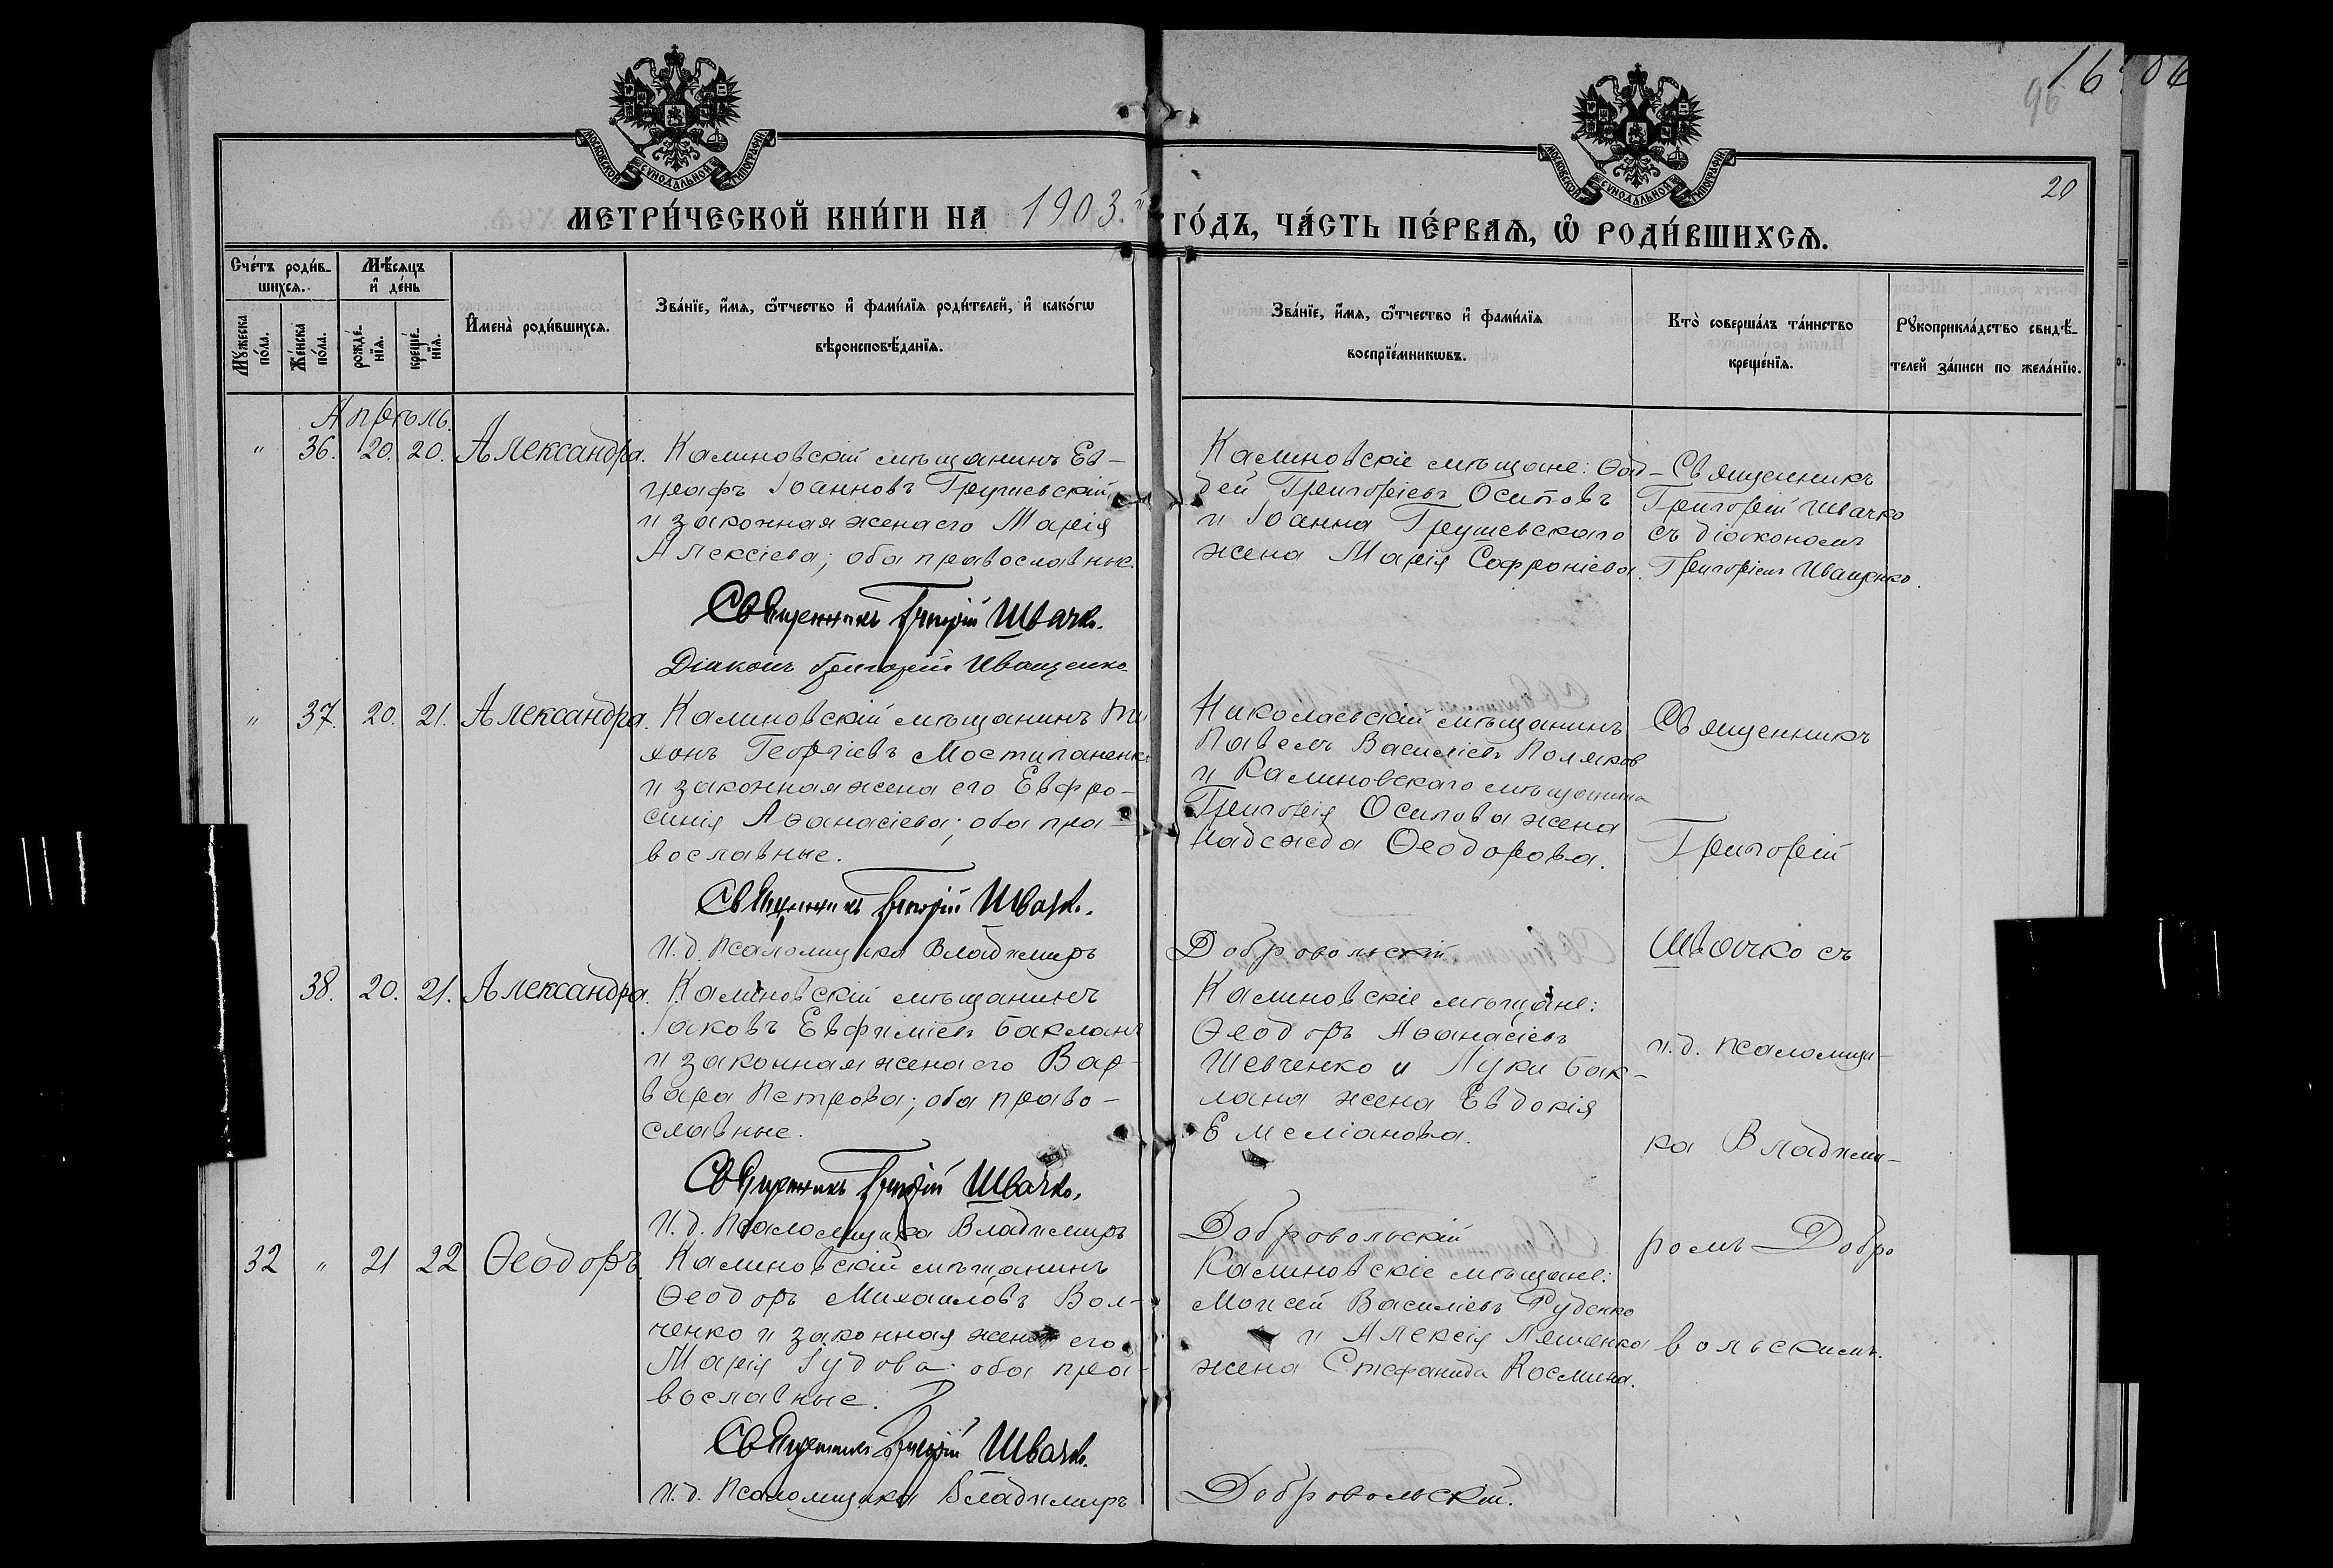 16 06
96
20
МОСКОВСКОЙ СѴНОДАЛЬНОЙ ТИПОГРАФІИ
МОСКОВСКОЙ СѴНОДАЛЬНОЙ ТИПОГРАФІИ
МЕТРИ́ЧЕСКОЙ КНИ́ГИ НА 1903.й ГО́ДЪ, ЧА́СТЬ ПЕ́РВАѦ, Ѡ҆ РОДИ́ВШИХСѦ.
Сче́тъ роди́в-
шихсѧ.
Мѣ́сѧцъ
и҆ де́нь
Мꙋ́жеска
по́ла.
Же́нска
по́ла.
рожде́-
нїѧ.
креще́-
нїѧ.
И҆мена̀ роди́вшихсѧ.
Зва́нїе, и҆́мѧ, ѻ҆́тчество и҆ фами́лїѧ роди́телей, и҆ како́гѡ
вѣроисповѣ́данїѧ.
Зва́нїе, и҆́мѧ, ѻ҆́тчество и҆ фами́лїѧ
воспрїе́мникѡвъ.
Кто̀ соверша́лъ та́инство
креще́нїѧ.
Рꙋкоприкла́дство свидѣ́-
телей за́писи по жела́нїю.
Апрѣль.
" 36. 20. 20. Александра.
Калиновскій мѣщанинъ Ев-
графъ Іоанновъ Грушевскій
и законная жена его Марія
Алексіева; оба православные.
Священникъ Григорій Швачко.
Діаконъ Григорій Иващенко
Калиновскіе мѣщане: Ѳад-
дей Григоріевъ Осиповъ
и Іоанна Грушевскаго
жена Марія Софроніева.
Священникъ
Григорій Швачко
съ діакономъ
Григоріемъ Иващенко.
" 37. 20. 21. Александра.
Калиновскій мѣщанинъ Ти
хонъ Георгіевъ Мостипаненко
и законная жена его Евфро-
синія Аѳанасіева; оба пра-
вославные.
Священникъ Григорій Швачко.
И. д. псаломщика Владимиръ Добровольскій
Николаевскій мѣщанинъ
Павелъ Василіевъ Поляков
и Калиновскаго мѣщанина
Григорія Осипова жена
Надежда Ѳеодорова.
Священникъ
Григорій
Швачко съ
и. д. псаломщи-
ка Владими-
ромъ Добро
вольскимъ.
38. 20. 21. Александра.
Калиновскій мѣщанинъ
Іаковъ Евфиміевъ Бакланъ
и законная жена его Вар-
вара Петрова; оба право-
славные.
Священникъ Григорій Швачко.
И. д. псаломщика Владимиръ Добровольскій
Калиновскіе мѣщане:
Ѳеодоръ Аѳанасіевъ
Шевченко и Луки Бак-
лана жена Евдокія
Емеліанова.
32 " 21 22 Ѳеодоръ.
Калиновскій мѣщанинъ
Ѳеодоръ Михаиловъ Вол-
ченко и законная жена его
Марія Іудова оба пра-
вославные.
Священникъ Григорій Швачко.
И. д. псаломщика Владимиръ Добровольскій.
Калиновскіе мѣщане:
Моисей Василіевъ Руденко
и Алексія Ляшенка
жена Стефанида Космина.